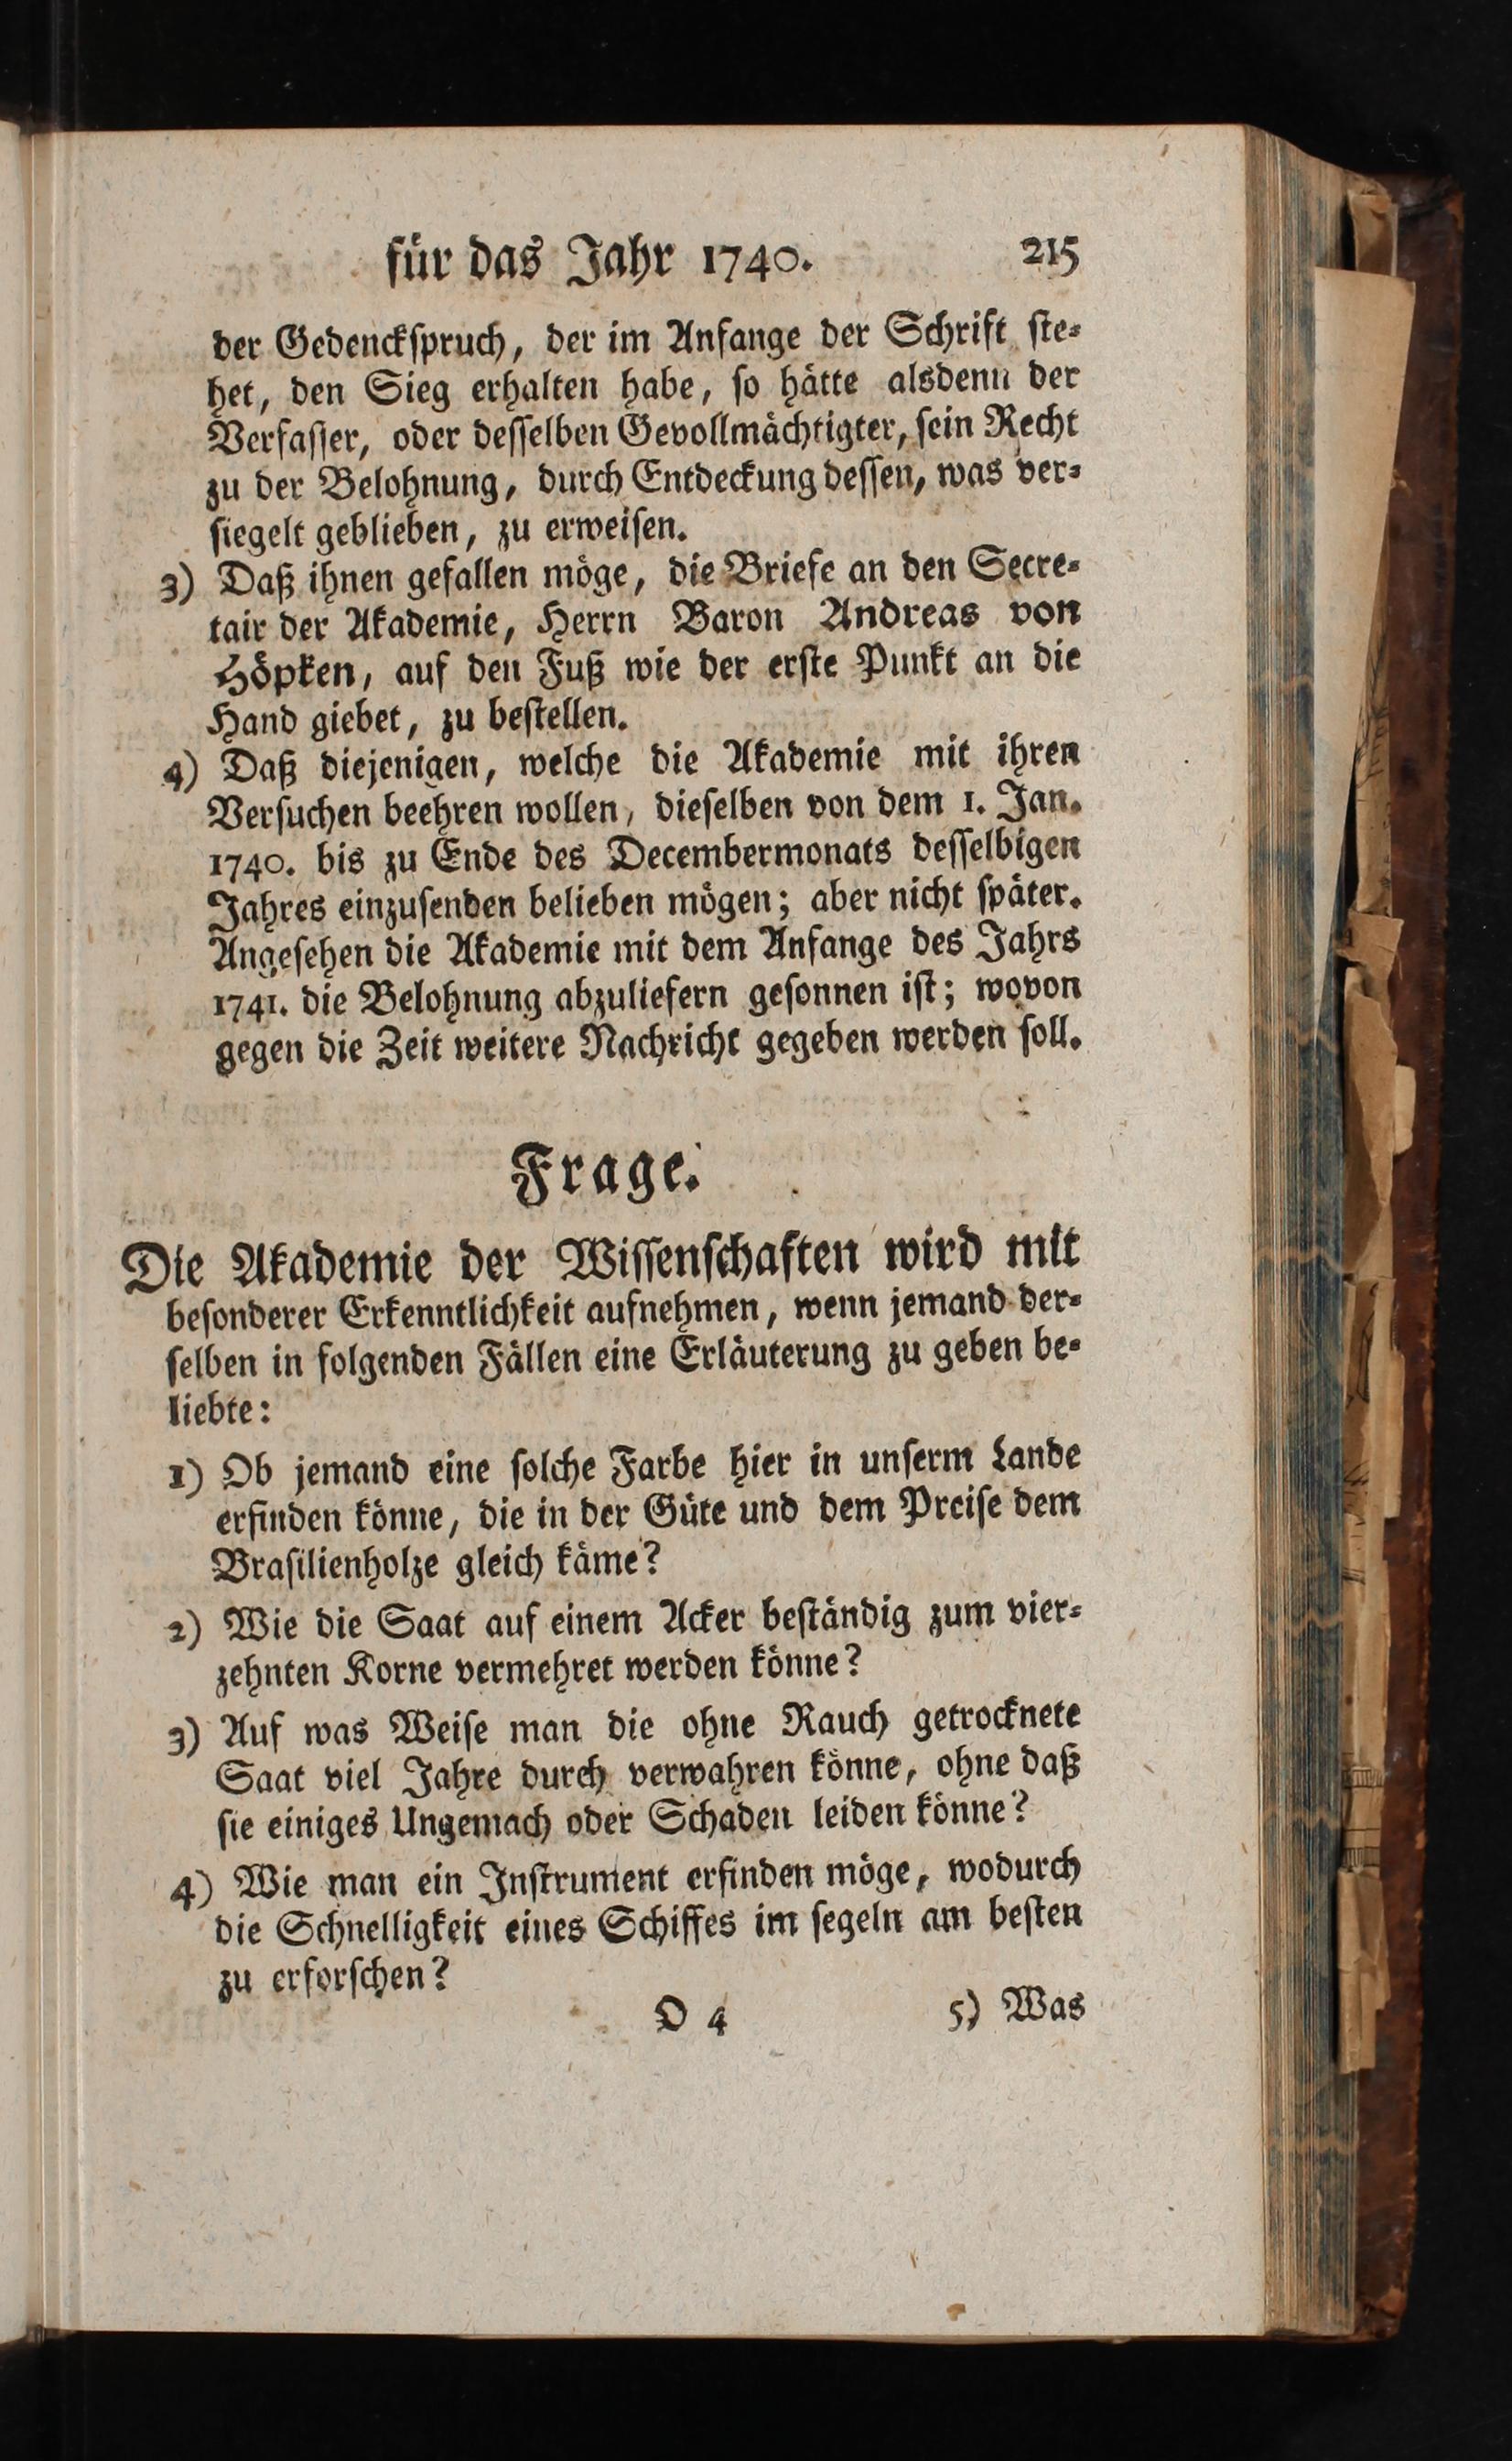 für das Jahr 1740. 215
der Gedenckſpruch, der im Anfange der Schrift ſte⸗
het, den Sieg erhalten habe, ſo hätte alsdenn der
Verfaſſer, oder deſſelben Gevollmächtigter, ſein Recht
zu der Belohnung, durch Entdeckung deſſen, was ver⸗
ſiegelt geblieben, zu erweiſen.
3) Daß ihnen gefallen möge, die Briefe an den Secre⸗
tair der Akademie, Herrn Baron Andreas von
Höpken, auf den Fuß wie der erſte Punkt an die
Hand giebet, zu beſtellen.
4) Daß diejenigen, welche die Akademie mit ihren
Verſuchen beehren wollen, dieſelben von dem 1. Jan.
1740. bis zu Ende des Decembermonats deſſelbigen
Jahres einzuſenden belieben mögen; aber nicht ſpäter.
Angeſehen die Akademie mit dem Anfange des Jahrs
1741. die Belohnung abzuliefern geſonnen iſt; wovon
gegen die Zeit weitere Nachricht gegeben werden ſoll.
Frage.
Die Akademie der Wiſſenſchaften wird mit
beſonderer Erkenntlichkeit aufnehmen, wenn jemand der⸗
ſelben in folgenden Fällen eine Erläuterung zu geben be⸗
liebte:
1) Ob jemand eine ſolche Farbe hier in unſerm Lande
erfinden könne, die in der Güte und dem Preiſe dem
Braſilienholze gleich käme?
2) Wie die Saat auf einem Acker beſtändig zum vier⸗
zehnten Korne vermehret werden könne?
3) Auf was Weiſe man die ohne Rauch getrocknete
Saat viel Jahre durch verwahren könne, ohne daß
ſie einiges Ungemach oder Schaden leiden könne?
4) Wie man ein Inſtrument erfinden möge, wodurch
die Schnelligkeit eines Schiffes im ſegeln am beſten
zu erforſchen?
O 4 5) Was